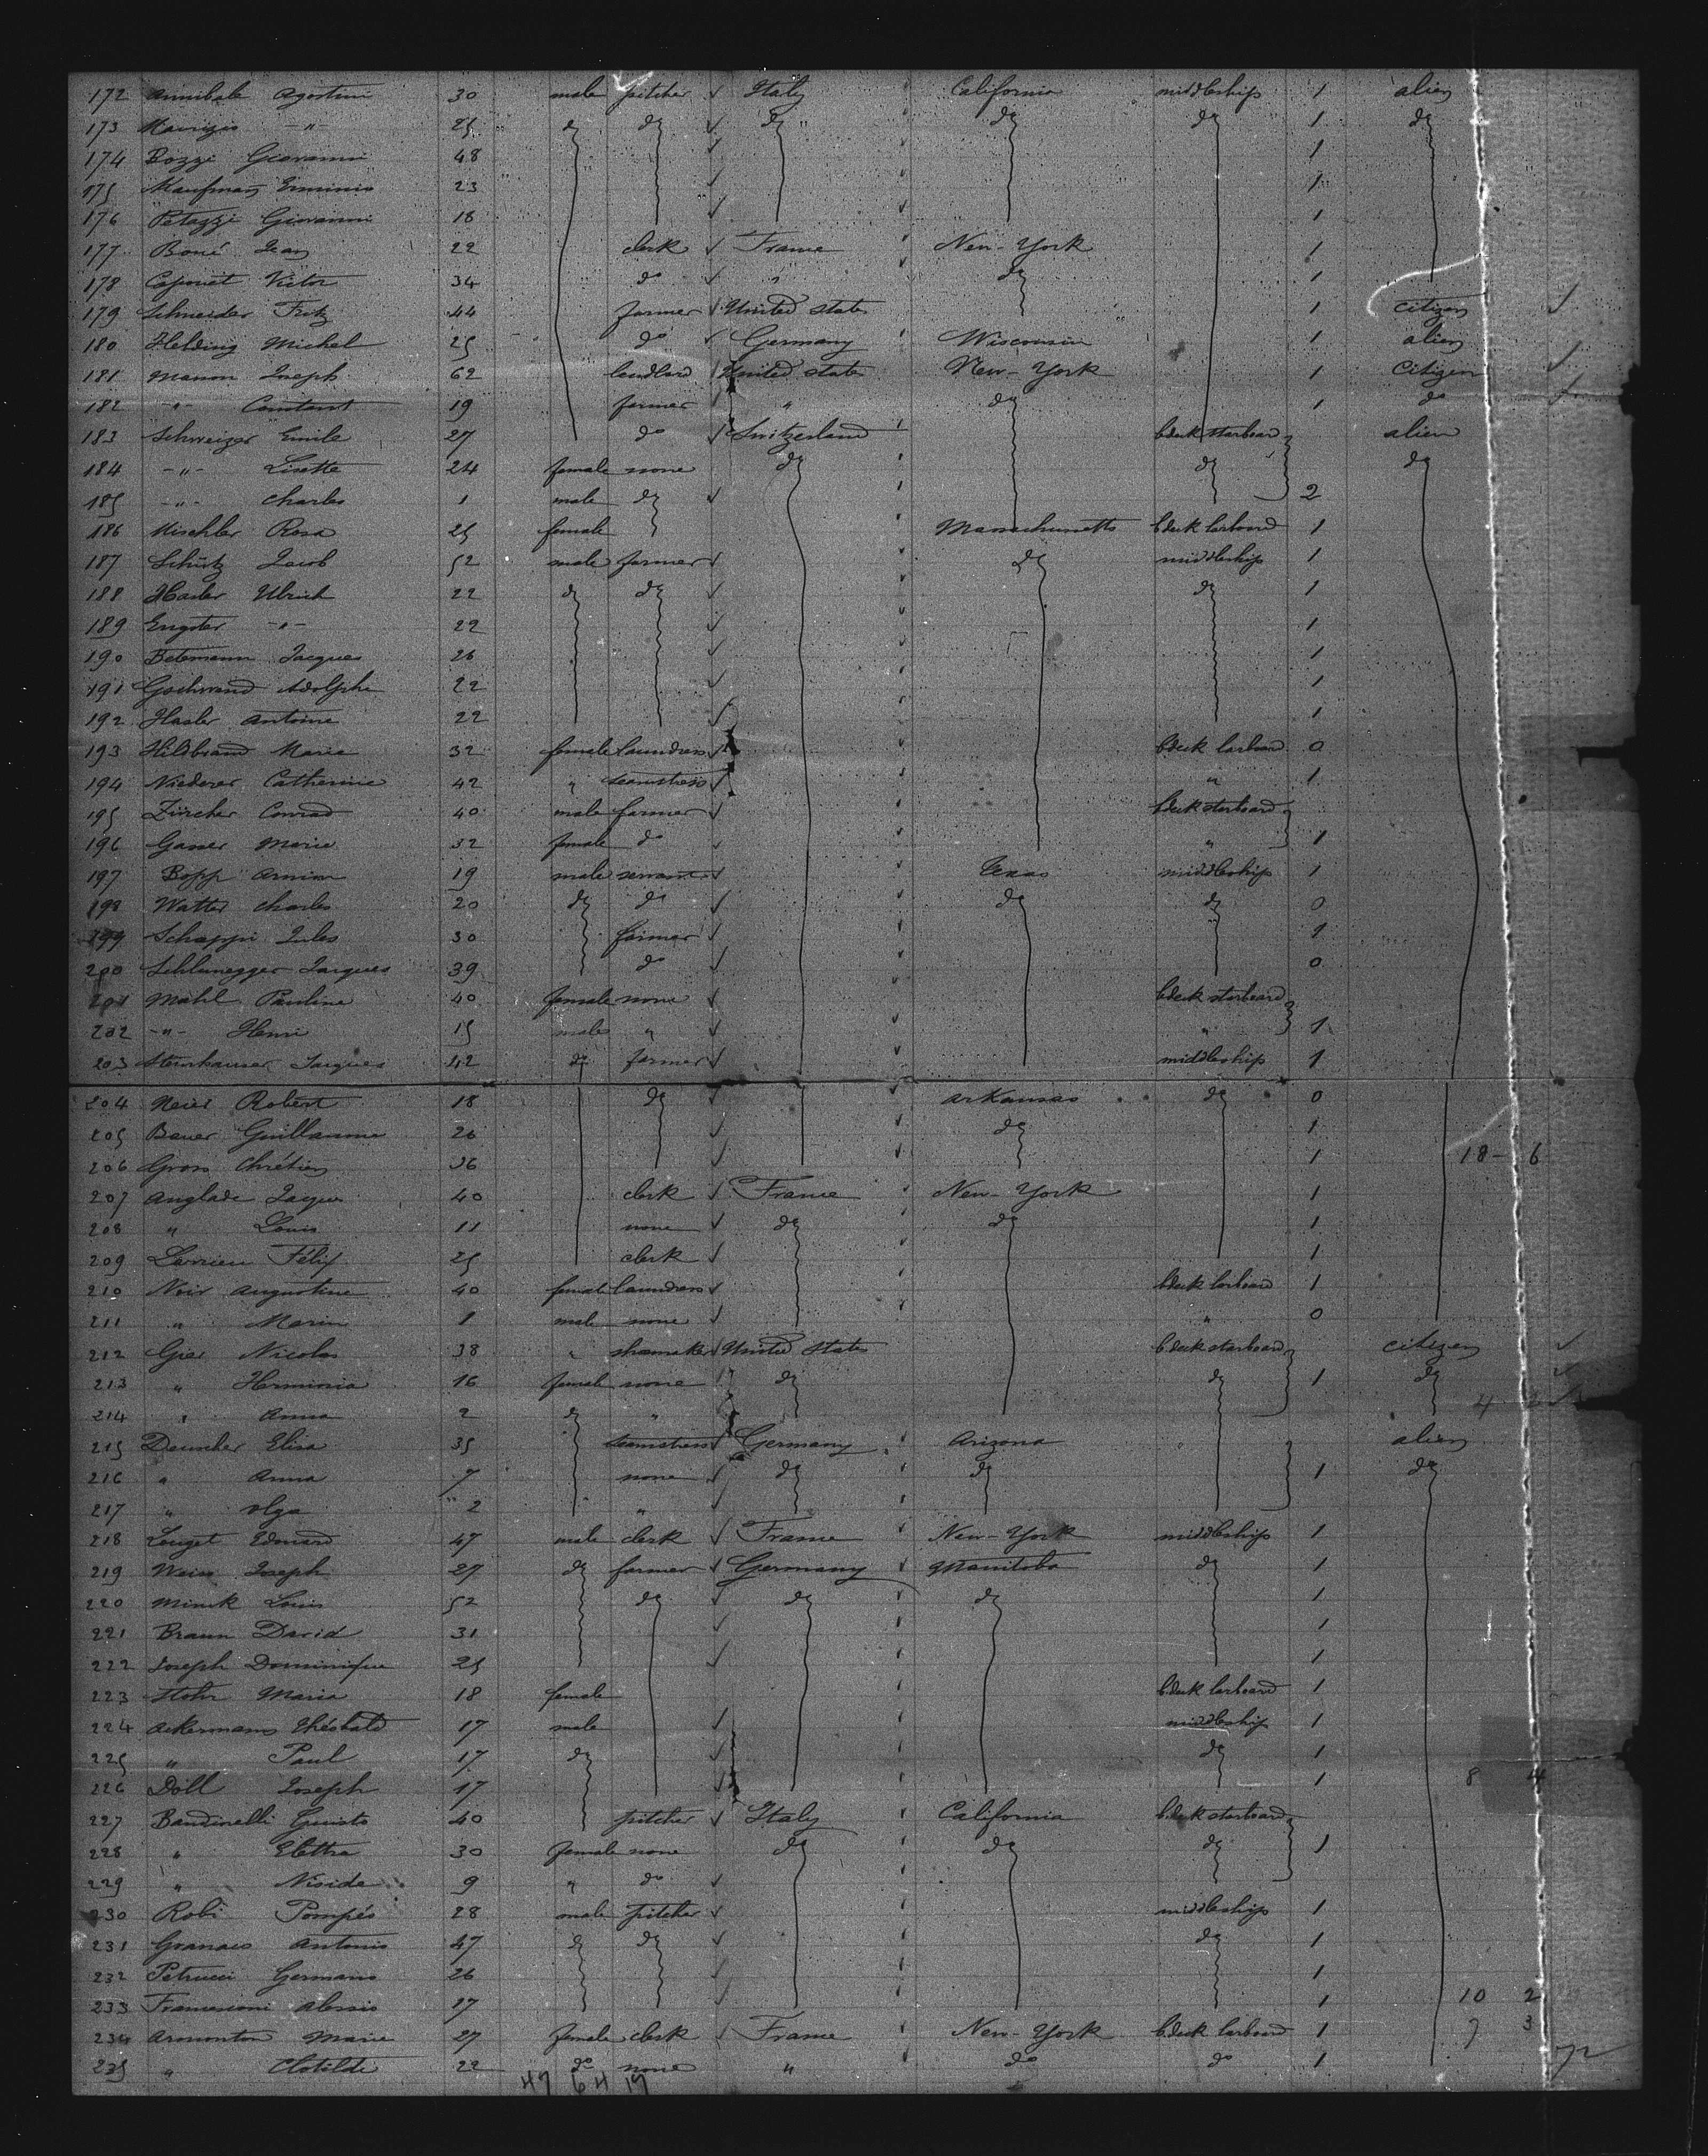 172 Annibale Agostini 30 male pitcher Italy California middleship 1 alien
173 Maurizio -"- 25 do do do do do 1 do
174 Bozzi Giovanni 48 1
175 Erminio 23 1
176 Petazzi Giovanni 18 1
177 Boué Jean 22 clerk France New-York 1
178 Caponet Victor 34 do " do 1
179 Schneider Fritz 44 farmer United States 1 citizen
180 Helding Michel 25 do Germany Wisconsin 1 alien
181 Manon Joseph 62 landlord United States New-York 1 Citizen
182 -"- Constant 19 farmer " do 1 do
183 Schweizer Emile 27 do Switzerland bdeck starboard alien
184 -"- Lisette 24 female none do do do
185 -"- Charles 1 male do 2
186 Mischler Rosa 25 female Massachusetts bdeck larboard 1
187 Schütz Jacob 52 male farmer do middleship 1
188 Hasler Ulrich 22 do do do 1
189 Engster -"- 22 1
190 Betemann Jacques 26 1
191 Gschwend Adolphe 22 1
192 Hasler Antoine 22 1
193 Hildbrand Maria 32 female laundress bdeck larboard 0
194 Niederer Catherine 42 " seamstress " 1
195 Zürcher Conrad 40 male farmer bdeck starboard
196 Gasser Marie 32 female do " 1
197 Bopp Armin 19 male servant Texas middleship 1
198 Watter Charles 20 do do do do 0
199 Schappi Jules 30 farmer 1
200 Schlunegger Jacques 39 do 0
201 Mahl Pauline 40 female none bdeck starboard
202 -"- Henri 15 male " " 1
203 Steinhauser Jacques 42 do farmer middleship 1
204 Robert 18 do Arkansas do 0
205 Bauer Guillaume 26 do 1
206 Gross Chrétien 36 1 18- 6
207 Anglade Jacques 40 clerk France New-York 1
208 " Louis 11 none do do 1
209 Larrieu Félix 25 clerk 1
210 Noir Augustine 40 female laundress bdeck larboard 1
211 " Marin 8 male none " 0
212 Gier Nicolas 38 " shomaker United States bdeck starboard citizen
213 " Herminia 16 female none do do 1 do
214 " Anna 2 do " 4 2
215 Deuscher Elisa 35 seamstress Germany Arizona alien
216 " Anna 7 none do do 1 do
217 " Olga 2 "
218 Louget Edouard 47 male clerk France New-York middleship 1
219 Weiss Joseph 27 do farmer Germany Manitoba do 1
220 Minck Louis 52 do do do 1
221 Braun David 31 1
222 Joseph Dominique 25 1
223 Stohr Maria 18 female bdeck larboard 1
224 Ackermann Théobald 17 male middleship 1
225 " Paul 17 do do 1
226 Döll Joseph 17 1 8 4
227 Bandinelli Giusto 40 pitcher Italy California bdeck starboard
228 " Elettra 30 female none do do do 1
229 " Niside 9 " do
230 Robi Pompéo 28 male pitcher middleship 1
231 Granaco Antonio 47 do do do 1
232 Petrucci Germano 26 1
233 Francesconi Alessio 17 1 10 2
234 Armonton Marie 27 female clerk France New-York bdeck larboard 1 7 3
235 " Clotilde 22 do none " do do 1 72
47 64 17